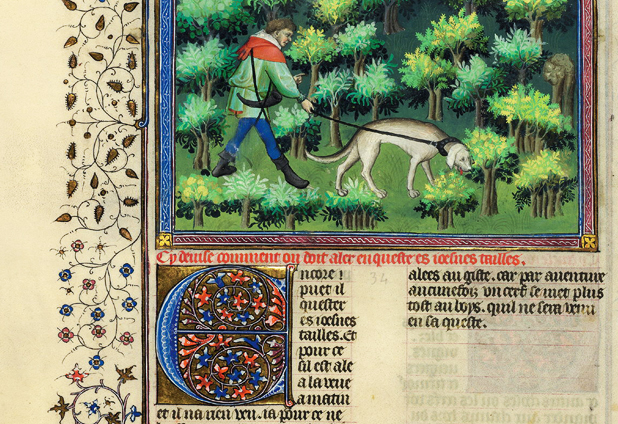 Cy devise comment on doit aler en queste es joesnes tailles.
Encore p
puet il
quester
es joesnes
tailles. Et
pour ce
sil est ale
a la veue
a matin
et il na rien veu. ja pour ce ne
34
alees au giste. car par aventure
aucunefois un cerf se met plus
tost au boys. quil ne sera venu
en sa queste.